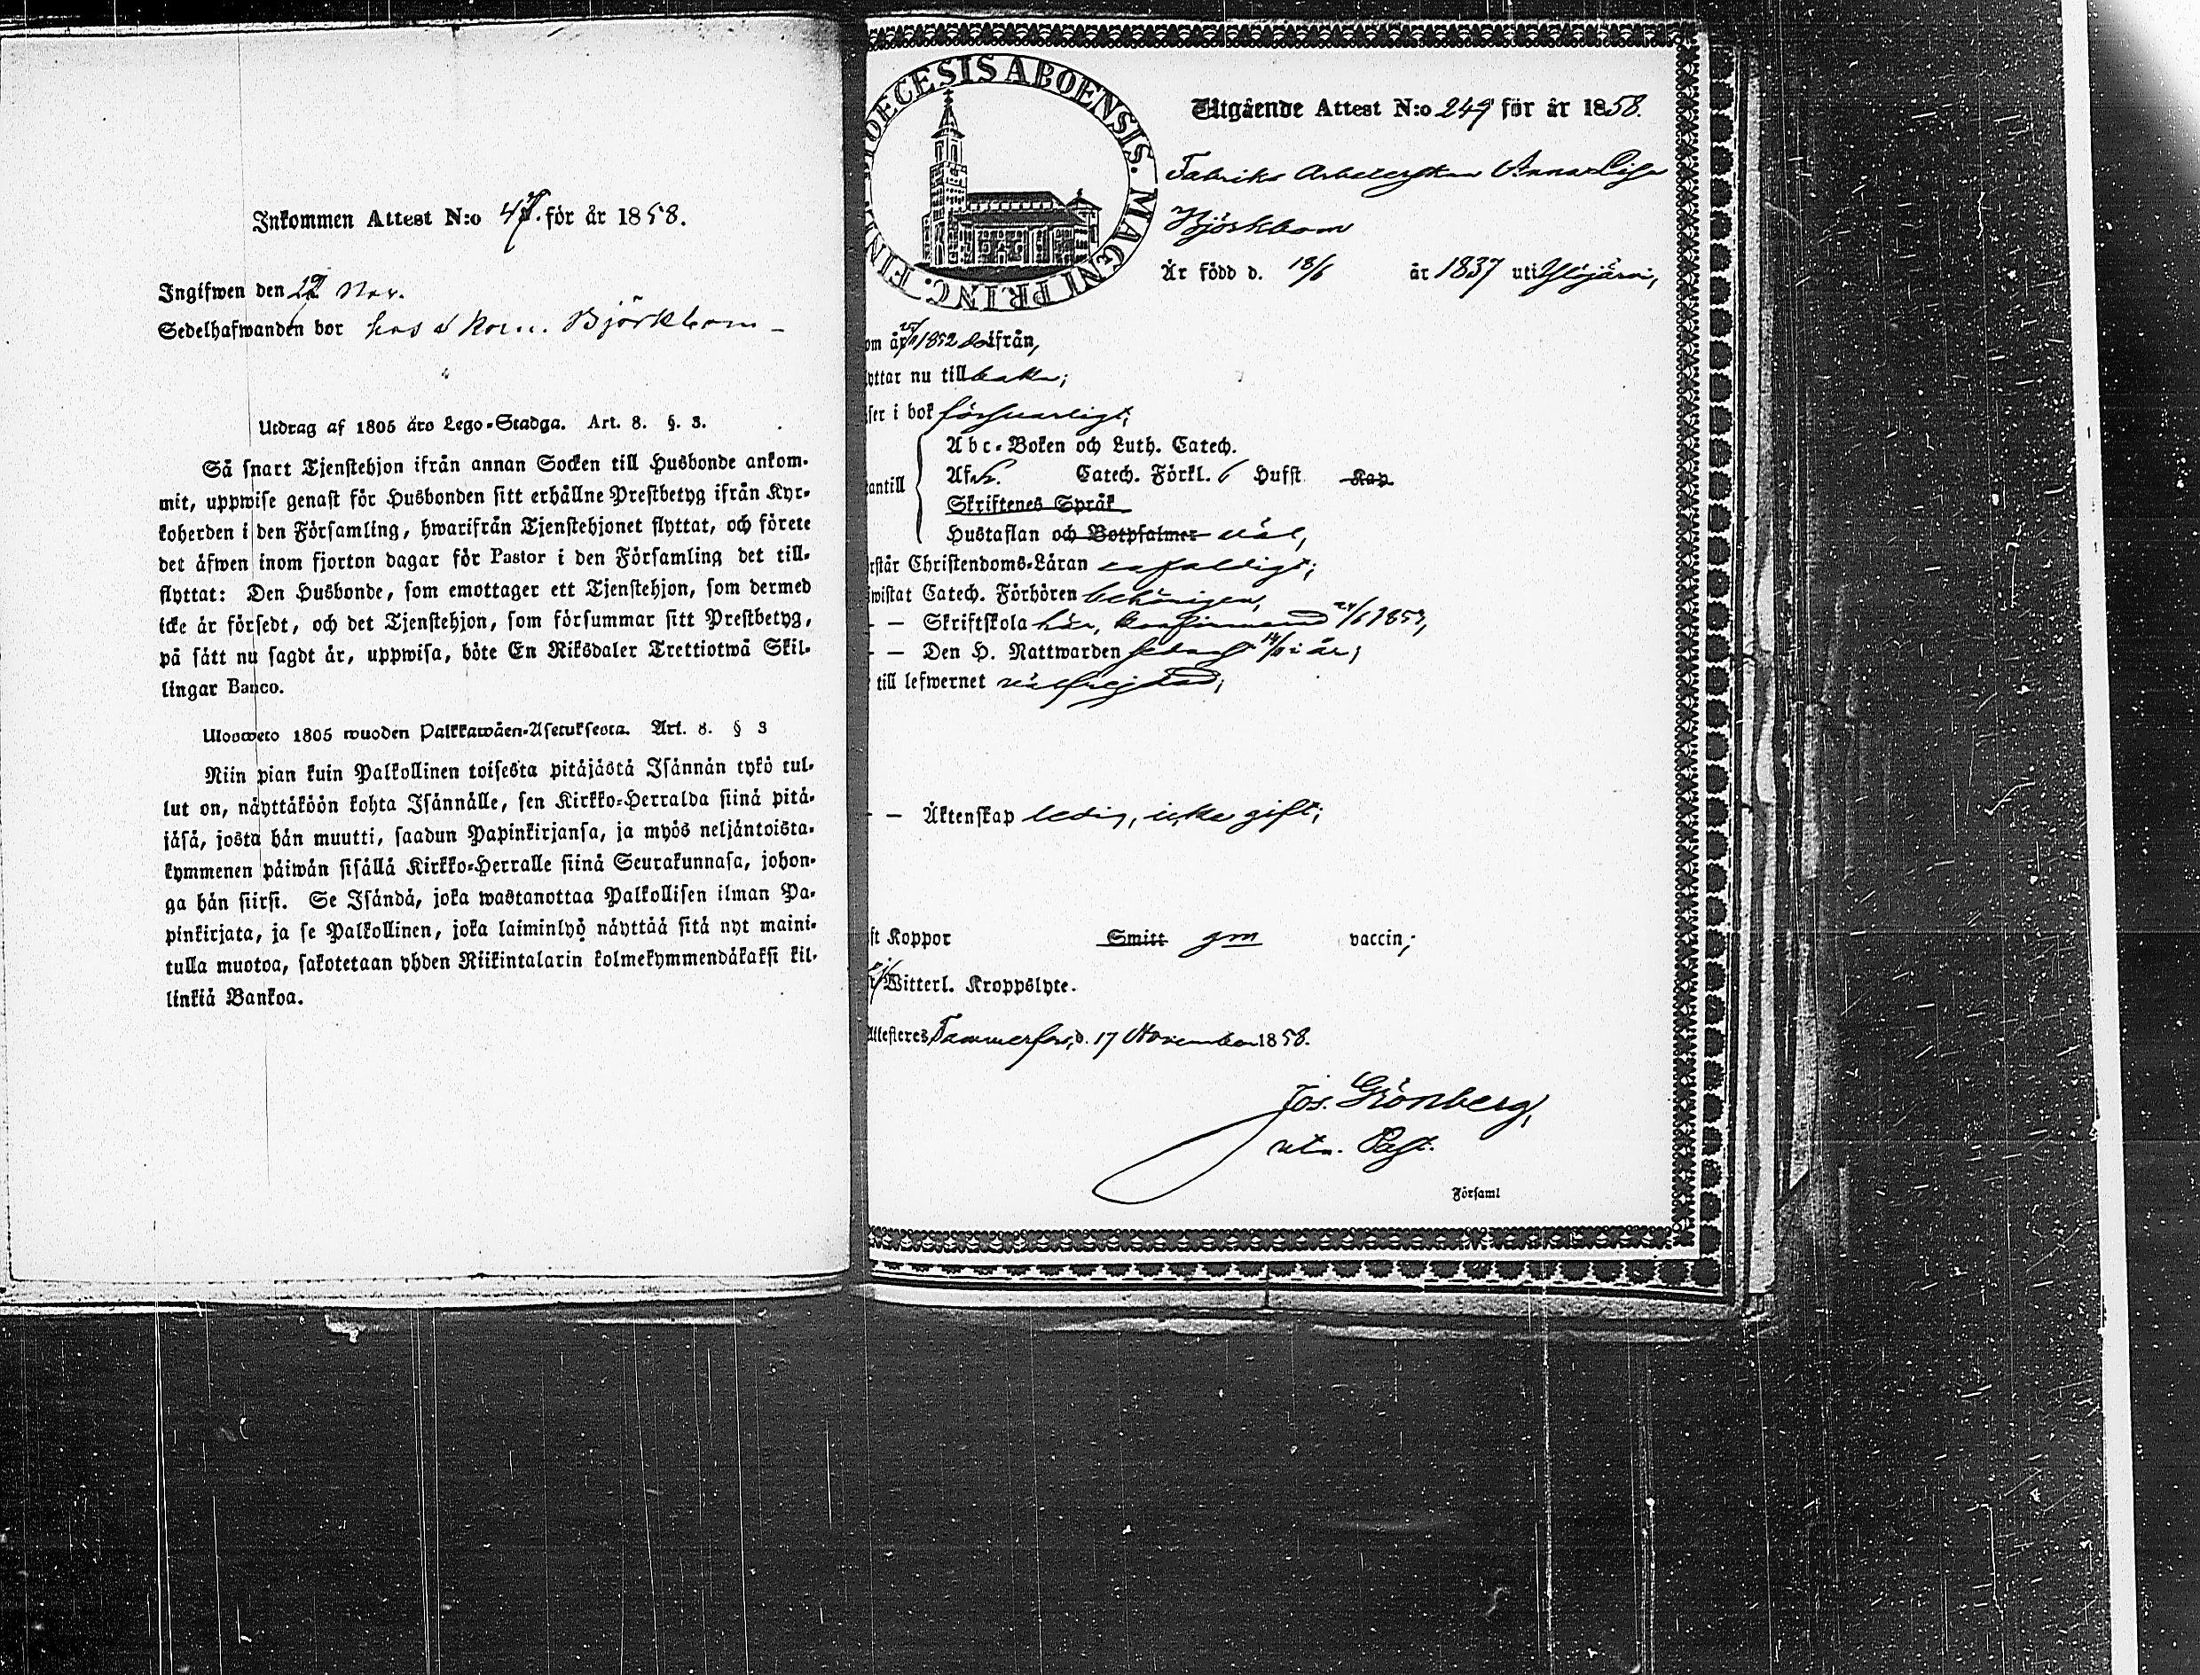 Inkommen Attest N:o 47. för år 1858.
Ingifwen den 22 Nov.
Sedelhafwanden bor hos Björkbom –
Utdrag af 1805 års Lego-Stadga. Art. 8. §. 3.
Så snart Tjenstehjon ifrån annan Socken till Husbonde ankom-
mit, uppwise genast för Husbonden sitt erhållne Prestbetyg ifrån Kyr-
koherden i den Församling, hwarifrån Tjenstehjonet flyttat, och förete
det äfwen inom fjorton dagar för Pastor i den Församling det till-
flyttat: Den Husbonde, som emottager ett Tjenstehjon, som dermed
icke är försedt, och det Tjenstehjon, som försummar sitt Prestbetyg,
på sätt nu sagdt är, uppwisa, böte En Riksdaler Trettiotwå Skil-
lingar Banco.
Ulosweto 1805 wuoden Palkkawäen-Asetuksesta. Art. 8. § 3
Niin pian kuin Palkollinen toisesta pitäjästä Isännän tykö tul-
lut on, näyttäköön kohta Isännälle, sen Kirkko-Herralda siinä pitä-
jäsä, josta hän muutti, saadun Papinkirjansa, ja myös neljäntoista-
kymmenen päiwän sisällä Kirkko-Herralle siinä Seurakunnasa, johon-
ga hän siirsi. Se Isändä, joka wastanottaa Palkollisen ilman Pa-
pinkirjata, ja se Palkollinen, joka laiminlyö näyttää sitä nyt maini-
tulla muotoa, sakotetaan yhden Riikintalarin kolmekymmendäkaksi kil-
linkiä Bankoa.
DIOECESIS ABOENSIS. MAGNI PRINC. FINL
Utgående Attest N:o 249 för år 1858.
Fabriks Arbeterskan Anna Lisa
Björkbom
Är född d. 18/6 år 1837 uti Ylöjärvi,
om år 1852 difrån,
yttar nu tillbaka;
ser i bok försvarligt;
antill
Abc-Boken och Luth. Catech.
Af Catech. Förkl. 6 Hufst. Kap.
Skriftenes Språk
Hustaflan och Botpsalmer väl,
rstår Christendoms-Läran enfaldigt;
iwistat Catech. Förhören behörigen,
– – Skriftskola här, konfirmerad 24/6 1853,
– – Den H. Nattwarden sednast i år;
till lefwernet välfrejdad;
– – Äktenskap ledig, icke gift;
ft Koppor Smitt gm vaccin;
ej Witterl. Kroppslyte.
Attesteres, Tammerfors, d. 17 November 1858.
Jos. Grönberg,
Past.
Församl